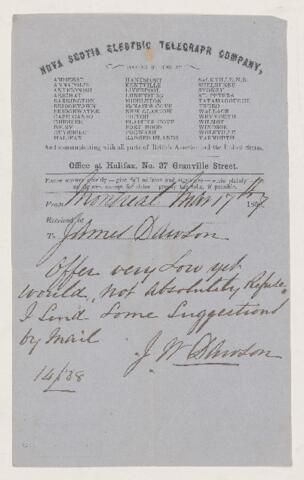 NOVA SCOTIA ELECTRIC TELEGRAPH COMPANY,
AMHERST HANTSPORT SACKVILLE, N.B.
ANNAPOLIS KENTVILLE SHELBURNE
ANTIGONISH LIVERPOOL SYDNEY
ARICHAT LUNENBURG ST. PETERS
BARRINGTON MIDDLETON TATAMAGOUCHE
BRIDGETOWN TRURO
BRIDGEWATER NEW GLASGOW WALLACE
CAPE CANSO PICTOU WEYMOUTH
CHESTER PLAISTER COVE WILMOT
DIGBY PORT HOOD WINDSOR
GUYSBORO' PUGWASH WOLFVILLE
HALIFAX RAGGED ISLANDS YARMOUTH
And communicating with all parts of British America and the United States.
Office at Halifax, No. 37 Granville Street.
From Montreal Mar 17th 185
Received at
To James Dawson
Offer very Low yet
would not absolutely Refuse
I Send Some Suggestions
by Mail
J W Dawson
14/38